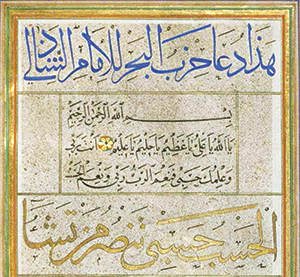 هذا دعا حزب البحر للامام الشاذلي
بسم الله الرحمن الرحيم
يا الله يا علي يا عظيم يا حليم يا عليم انت ربي
وعلمك حسبي فنعم الرب ربي ونعم
الحسب حسبي تنصر من تشا